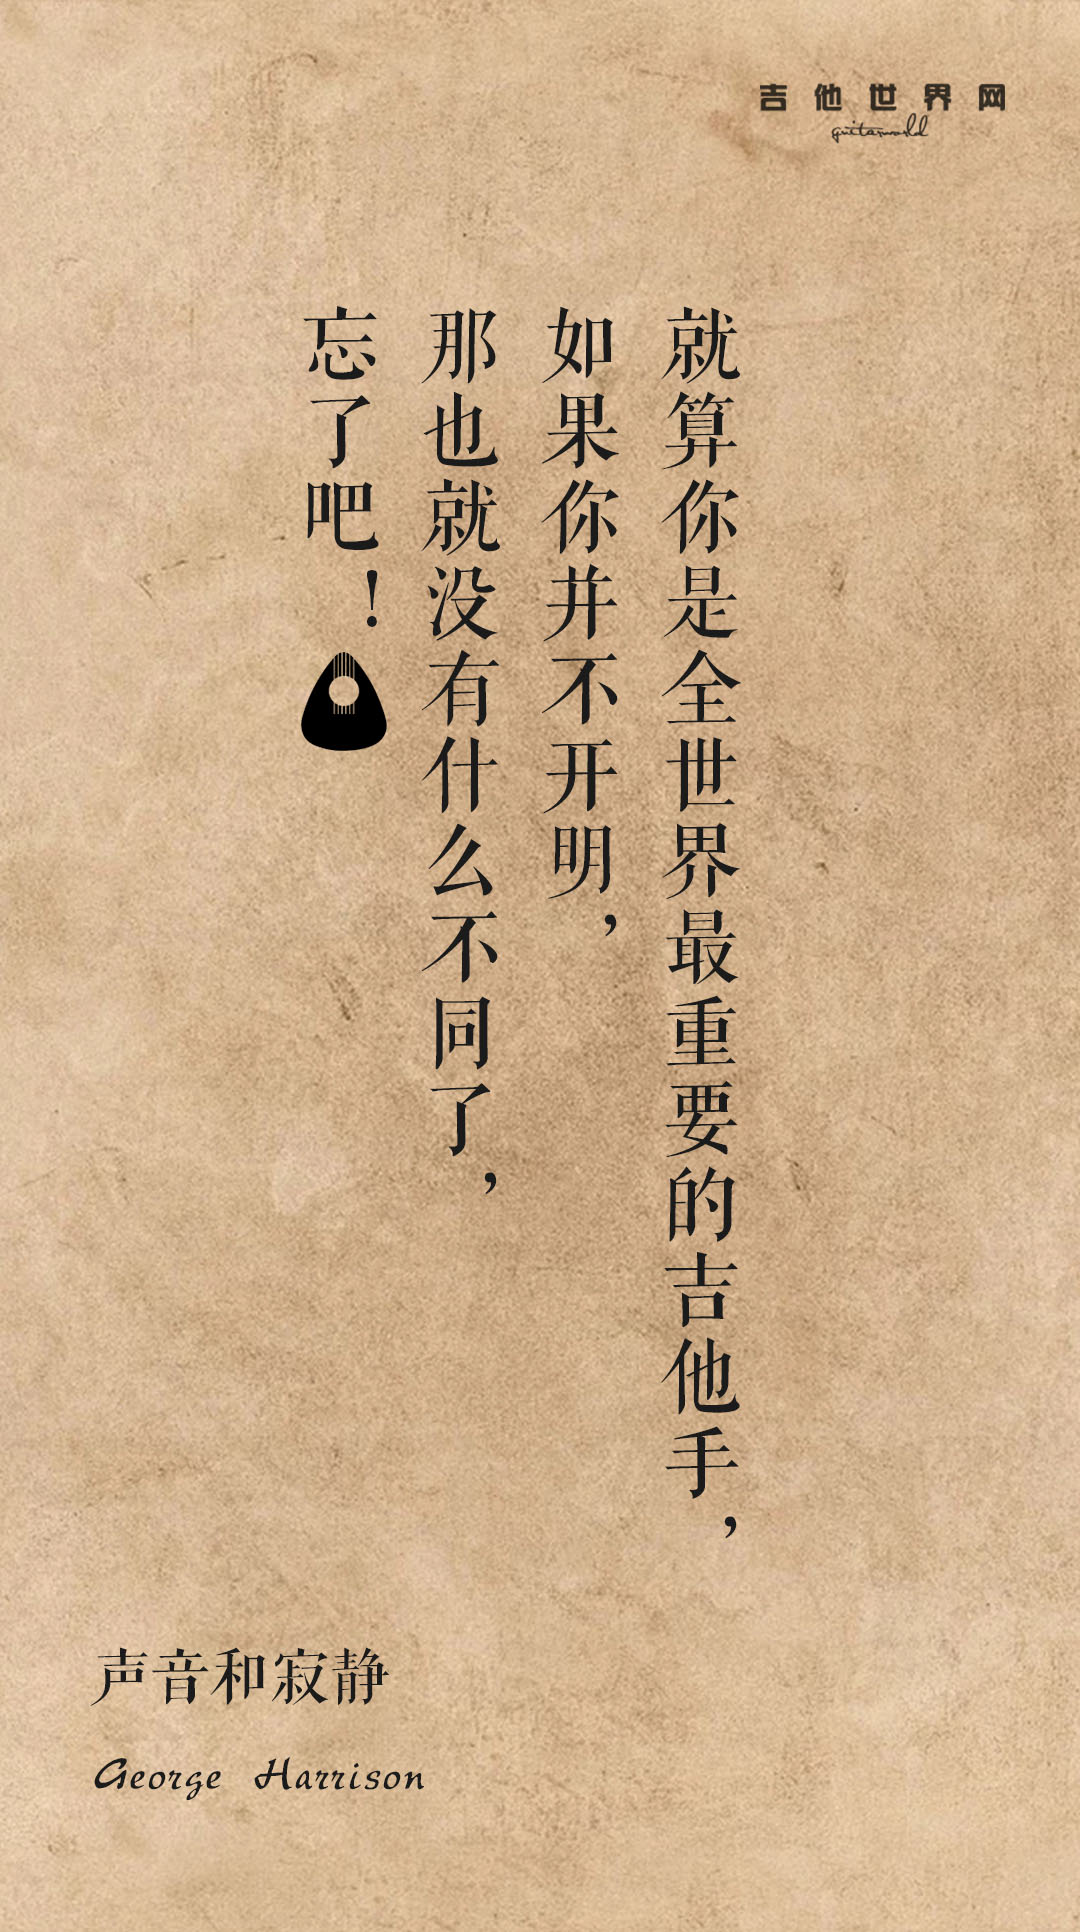 吉他世界网
guitarworld
就算你是全世界最重要的吉他手，
如果你并不开明，
那也就没有什么不同了，
忘了吧！
声音和寂静
George Harrison